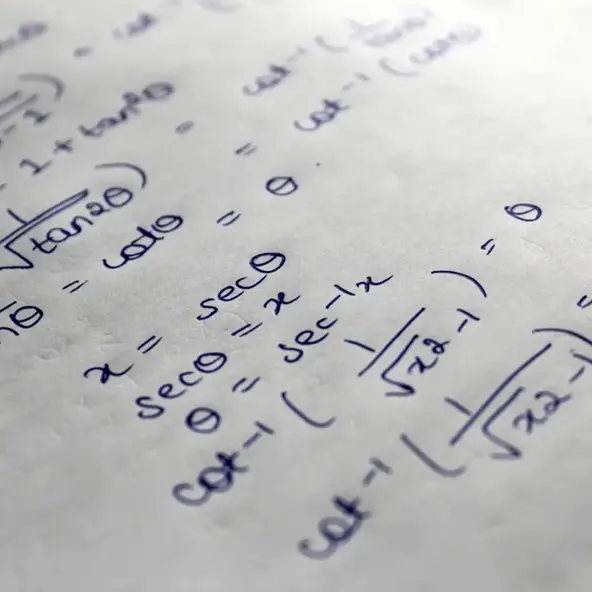 cot⁻¹ (1/tanθ)
1 + tan²θ = cot⁻¹ (cotθ)
(1/√tan2θ) = θ
θ = cotθ =
x = secθ
secθ = x
θ = sec⁻¹x
cot⁻¹ (1/√x2-1) = θ
cot⁻¹ (1/√x2-1) =